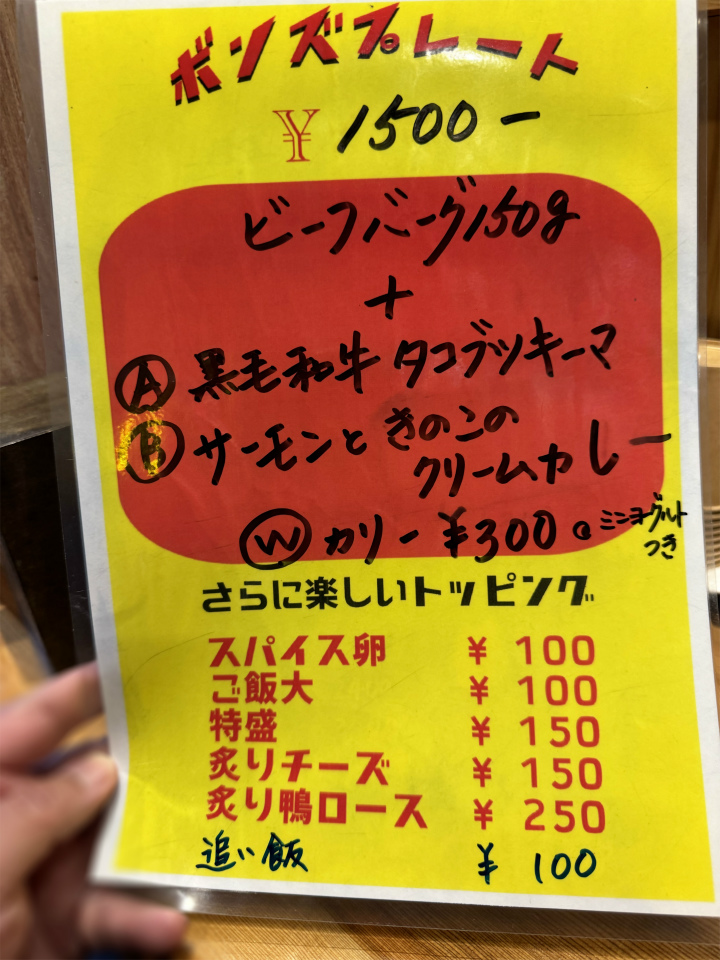 ボンズプレート
¥1500-
ビーフバーグ150g
+
Ⓐ黒毛和牛タコブツキーマ
Ⓑサーモンときのこの
クリームカレー
Ⓦカリー ¥300 ミニヨーグルト
つき
さらに楽しいトッピング
スパイス卵 ¥100
ご飯大 ¥100
特盛 ¥150
炙りチーズ ¥150
炙り鴨ロース ¥250
追い飯 ¥100